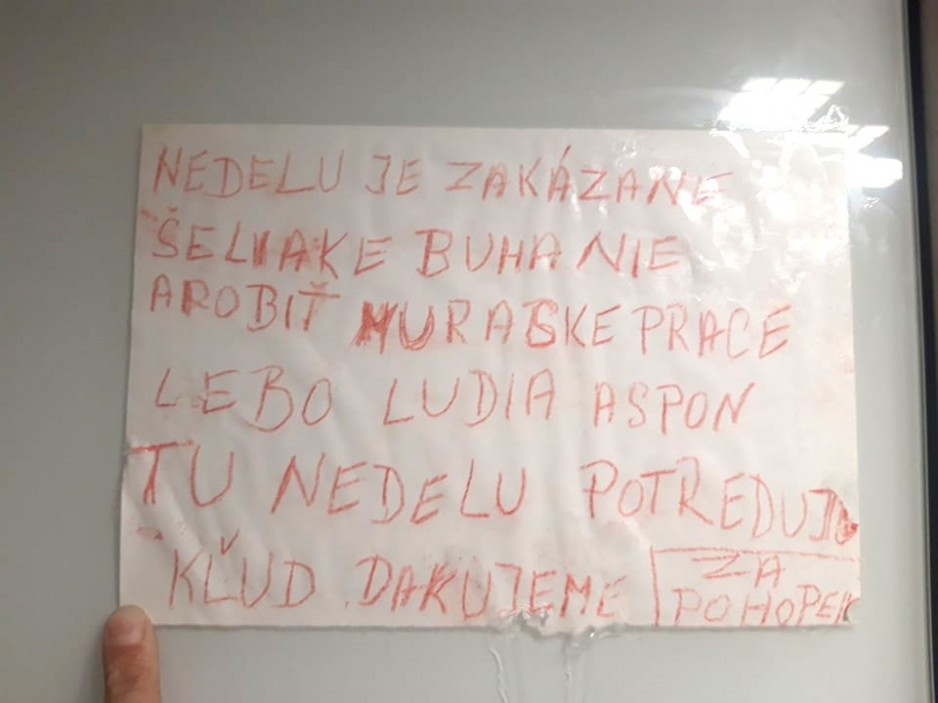 NEDELU JE ZAKÁZANE
ŠELIAKE BUHANIE
AROBIŤ MURARSKE PRACE
LEBO LUDIA ASPON
TU NEDELU POTREDUJU
KĽUD DAKUJEME ZA
POHOPEN